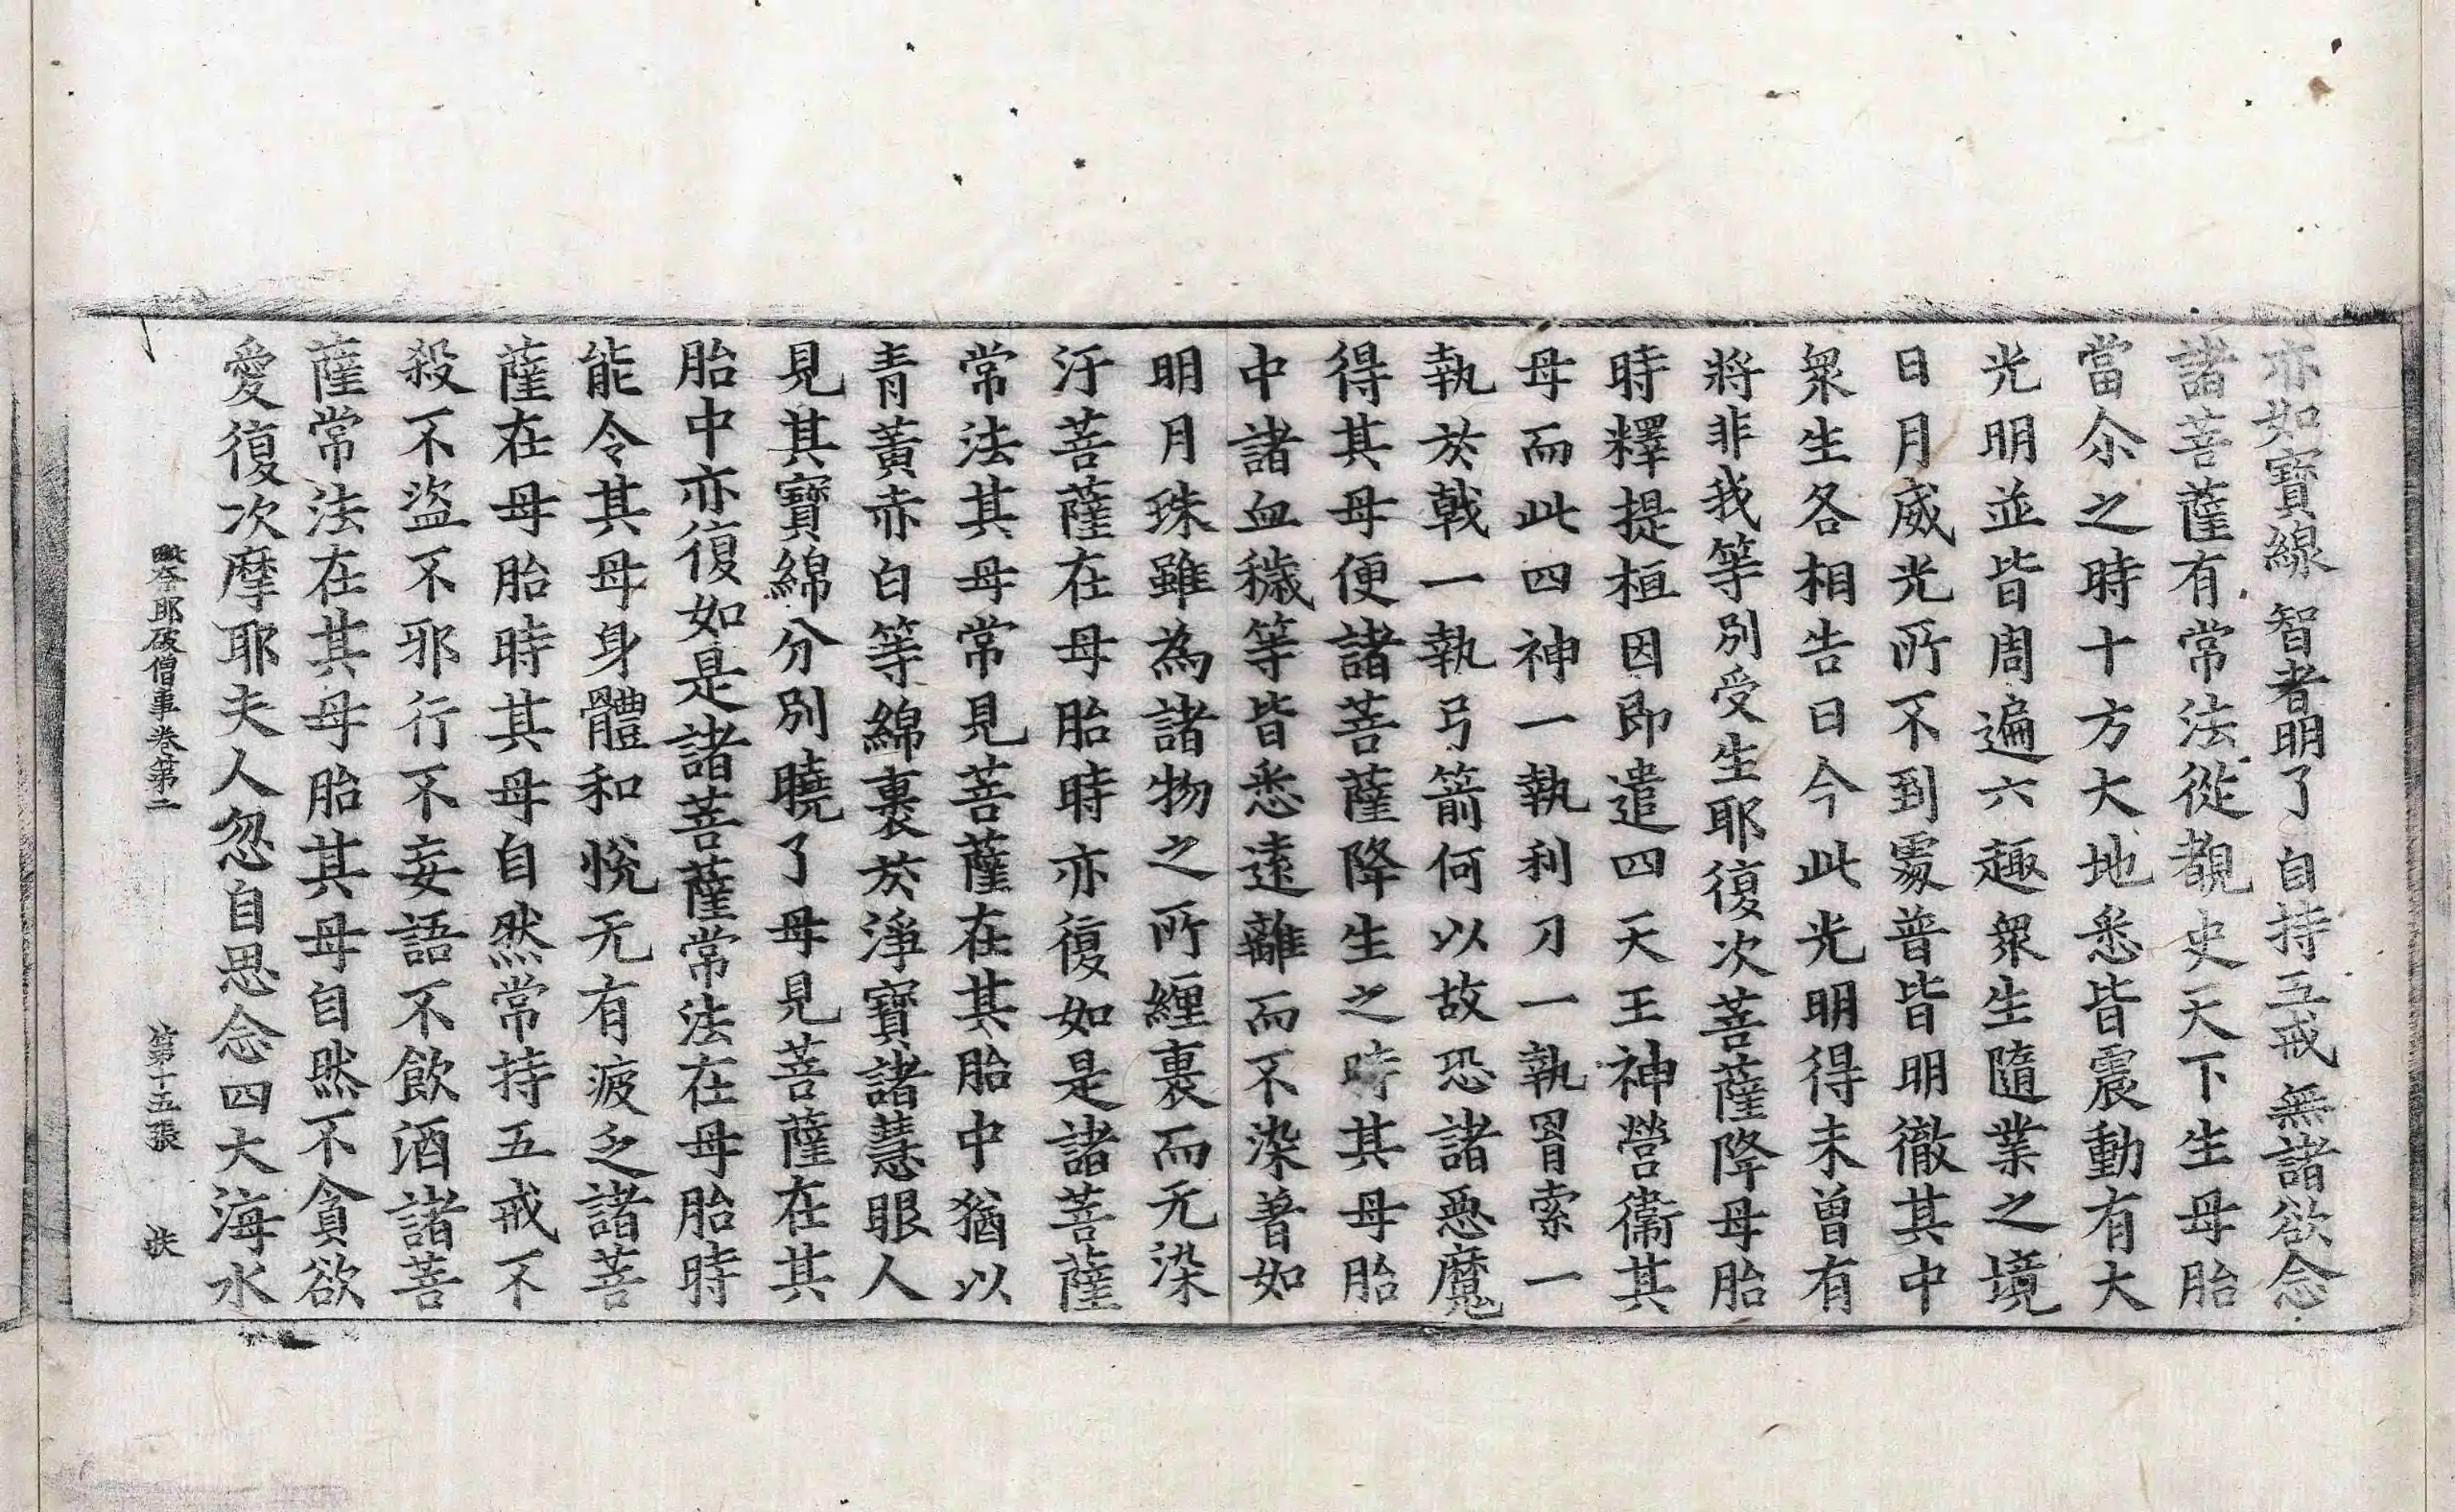 亦如寶線 智者明了 自持五戒 無諸欲念
諸菩薩有常法從覩史天下生母胎
當尒之時十方大地悉皆震動有大
光明並皆周遍六趣衆生隨業之境
日月威光所不到處普皆明徹其中
衆生各相告曰今此光明得未曾有
將非我等別受生耶復次菩薩降母胎
時釋提桓因即遣四天王神營衞其
母而此四神一執利刀一執罥索一
執於戟一執弓箭何以故恐諸惡魔
得其母便諸菩薩降生之時其母胎
中諸血穢等皆悉遠離而不染著如
明月珠雖為諸物之所纏裹而无染
汙菩薩在母胎時亦復如是諸菩薩
常法其母常見菩薩在其胎中猶以
青黃赤白等綿裹於淨寶諸慧眼人
見其寶綿分別曉了母見菩薩在其
胎中亦復如是諸菩薩常法在母胎時
能令其母身體和悅无有疲乏諸菩
薩在母胎時其母自然常持五戒不
殺不盜不邪行不妄語不飲酒諸菩
薩常法在其母胎其母自然不貪欲
愛復次摩耶夫人忽自思念四大海水
耶破僧事卷第二 第十五張